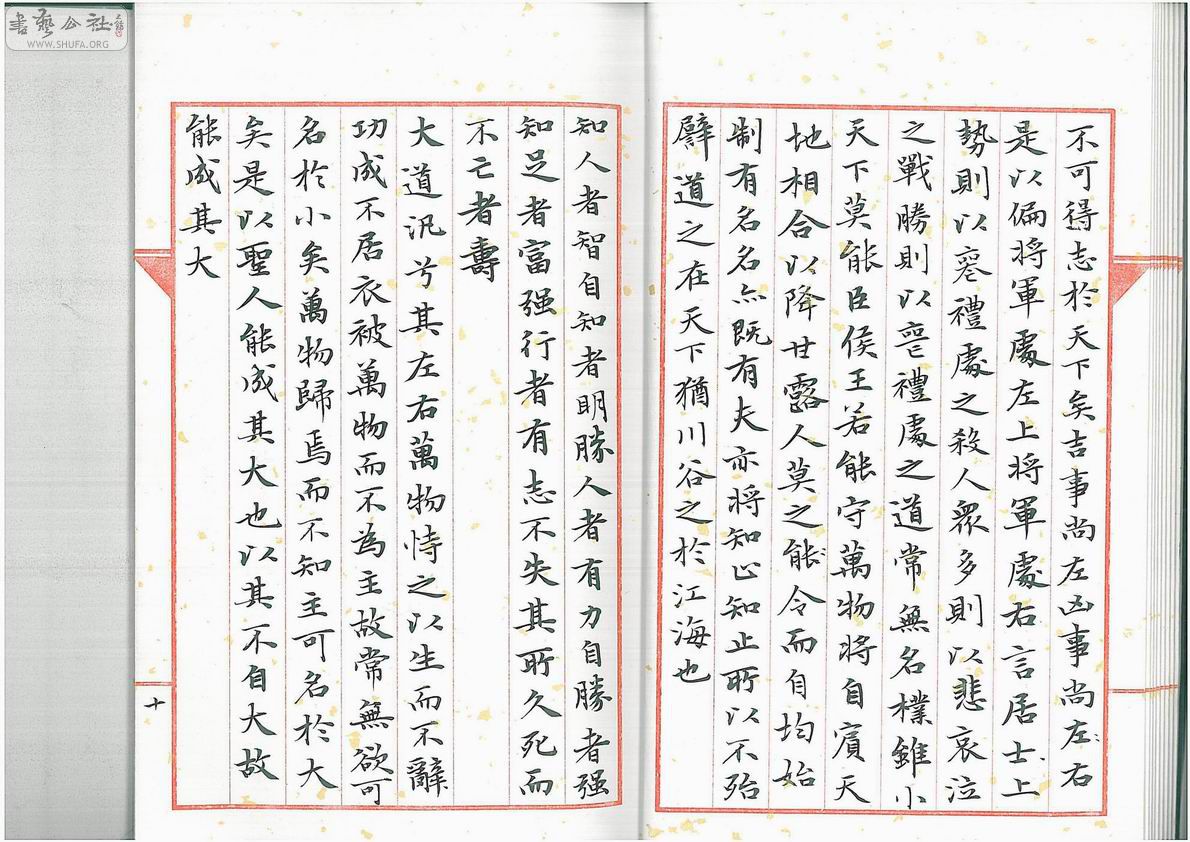 書藝公社
WWW.SHUFA.ORG
不可得志於天下矣吉事尚左凶事尚左右
是以偏將軍處左上將軍處右言居士上
勢則以喪禮處之殺人衆多則以悲哀泣
之戰勝則以喪禮處之道常無名樸雖小
天下莫能臣侯王若能守萬物將自賓天
地相合以降甘露人莫之能令而自均始
制有名名亦既有夫亦將知止知止所以不殆
譬道之在天下猶川谷之於江海也
知人者智自知者明勝人者有力自勝者强
知足者富强行者有志不失其所久死而
不亡者壽
大道汎兮其左右萬物恃之以生而不辭
功成不居衣被萬物而不為主故常無欲可
名於小矣萬物歸焉而不知主可名於大
矣是以聖人能成其大也以其不自大故
能成其大
十